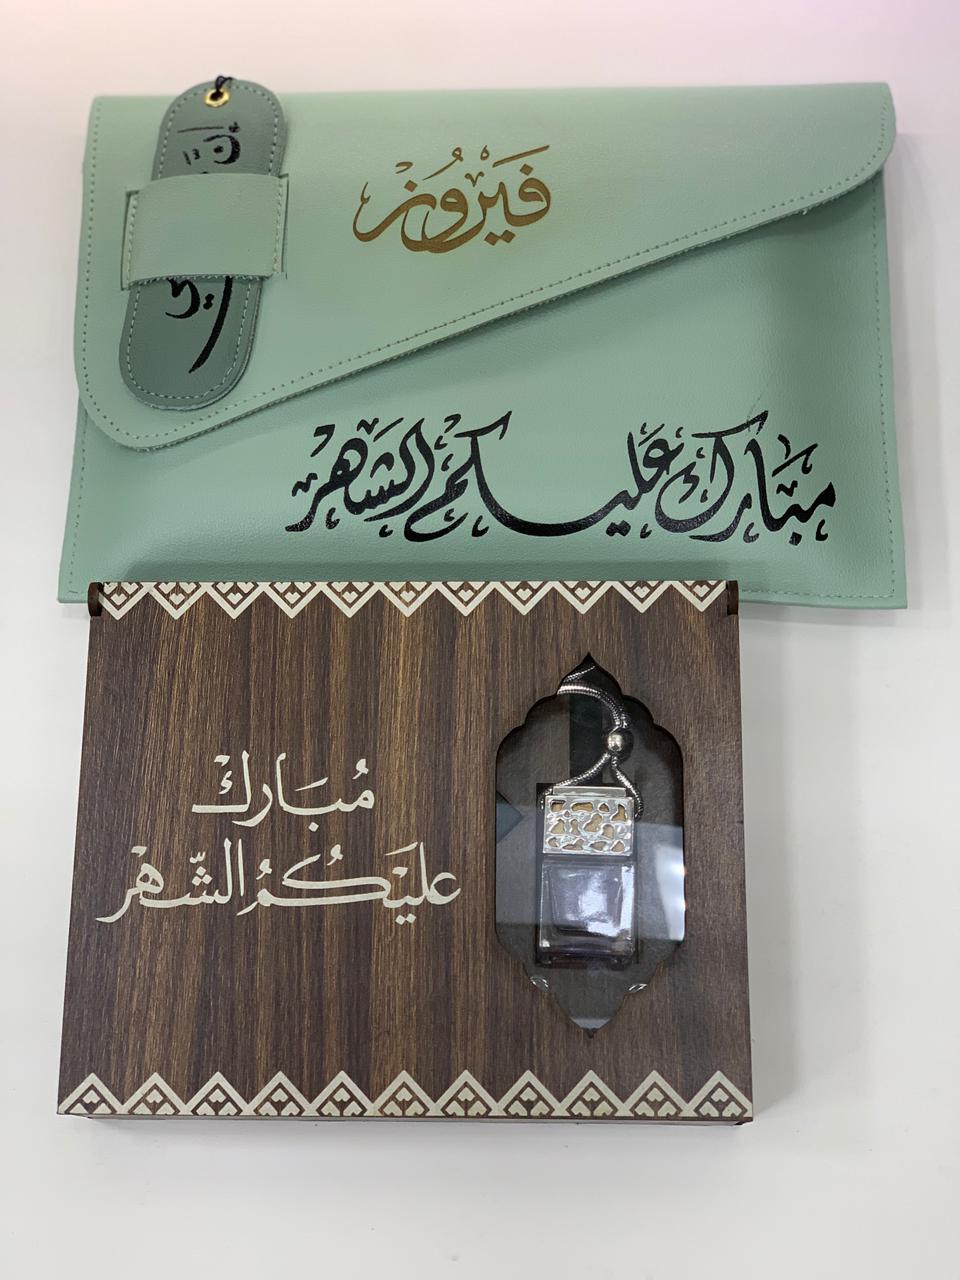 فَيْرُوز
مبارك عليكم الشهر
مُبَارك
عليكُمُ الشّهر